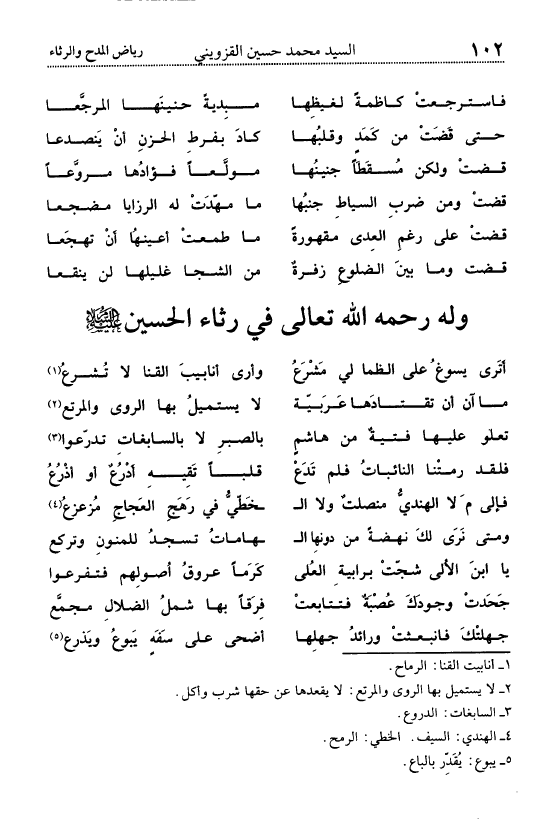 ١٠٢ السيد محمد حسين القزويني رياض المدح والرثاء
فاسترجعتْ كاظمةً لغيظِها مـبـديةً حنينَهـا المرجعَّـا
حتى قضَتْ من كمَدٍ وقلبُها كادَ بفرطِ الحزنِ أنْ يَنصدعا
قـضتْ ولكن مُسقَطاً جنينُها مولَّعـاً فـؤادُها مـروَّعـاً
قضتْ ومن ضربِ السياطِ جنبُها ما مهّدَتْ له الرزايا مضجعا
قضتْ على رغمِ العدى مقهورةً ما طمعتْ أعينهُا أنْ تهجَعا
قـضت وما بينَ الضلوعِ زفرةٌ من الشجا غليلها لن ينقعـا
وله رحمه الله تعالى في رثاء الحسين عليه السلام
أترى يسوغُ على الظما لي مَشْرَعُ وأرى أنابيبَ القنا لا تُشـرعُ(١)
مـا آن أن تقـتـادَهـا عَرَبيّة لا يستميلُ بها الروى والمرتع(٢)
تعلو عليهـا فـتيـةٌ من هاشمٍ بالصبرِ لا بالسابغاتِ تدرّعوا(٣)
فلقـد رمتْنا النائبـاتُ فلم تدَعْ قلبـاً تَقيـهِ أدْرُعٌ أو أذْرُعُ
فإلى مَ لا الهنديُّ منصلتٌ ولا الـ ـخطّيُّ في رَهَجِ العجاجِ مُزعزعُ(٤)
ومتى نَرَى لكَ نهضةً من دونِها الـ ـهاماتُ تسجدُ للمنونِ وتركع
يا ابنَ الألى شجّتْ برابيةِ العُلى كَرَماً عروقُ أصولِهم فتفرعوا
جَحدَتْ وجودَكَ عصْبَةٌ فتتابعتْ فِرقاً بها شملُ الضلالِ مجمَّع
جهلتْكَ فانبعثتْ ورائدُ جهلِها أضحى على سفَهٍ يَبوعُ ويَذرع(٥)
١ـ أنابيت القنا: الرماح.
٢ـ لا يستميل بها الروى والمرتع: لا يقعدها عن حقها شرب وأكل.
٣ـ السابغات: الدروع.
٤ـ الهندي: السيف. الخطي: الرمح.
٥ـ يبوع: يُقدّر بالباع.